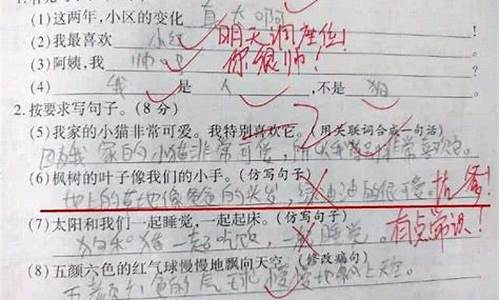 (1)这两年,小区的变化真大啊
(2)我最喜欢 小红 明天调座位!
(3)阿姨,我 帅吧 你很帅!
(4) 我 是 人 ,不是 狗
2.按要求写句子。(8分)
(5)我家的小猫非常可爱。我特别喜欢它。(用关联词合成一句话)
因为我家的小猫非常可爱,所以我 非常喜欢它。
(6)枫树的叶子像我们的小手。(仿写句子)
地上的草地像爸爸的头发,绿油油的很可爱。抗爹!
(7)太阳和我们一起睡觉,一起起床。(仿写句子)
狗和猪一起吃饭,一起睡觉。 有点常识!
(8)五颜六色的红气球慢慢地飘向天空。(修改病句)
五颜六色的气球慢慢地飘上天空。